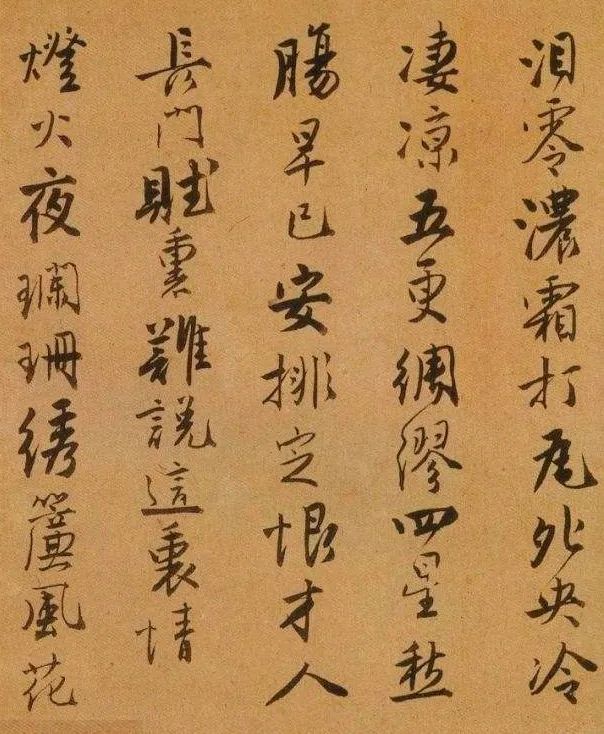 泪零濃霜打瓦夗央冷
凄凉五更綢繆四星愁
腸早已安排定恨才人
長門賦裏難説這裏情
燈火夜瓓珊綉簾風花